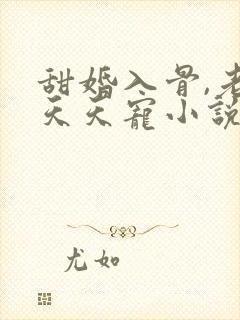 甜婚入骨,老
天天寵小說
尤如